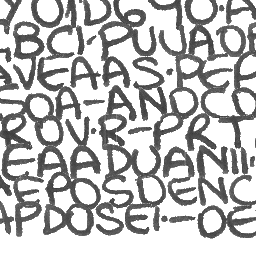 YOIDG JO.A
BCI-PUUADE
AVEAAS.PEP
SOA-ANDCO
ROV.R-PRT
EAADUANIII.
AEPOSDENC
APDOSEI.-OE